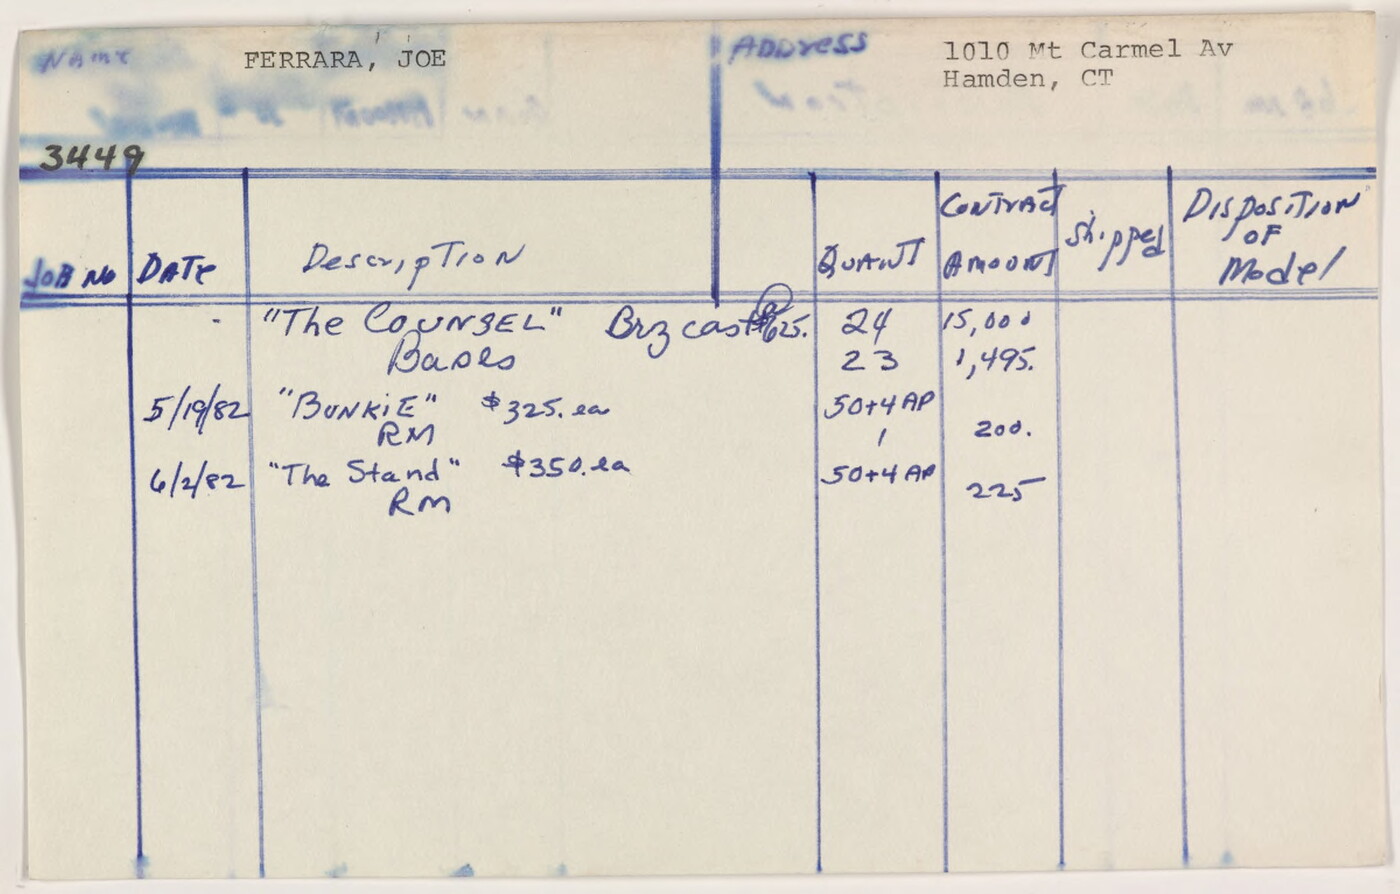 NAME FERRARA, JOE ADDRESS 1010 Mt Carmel Av
Hamden, CT
3449
JOB NO DATE Description QUANT CONTRACT AMOUNT Shipped DISPOSITION OF Model
"The COUNSEL" Brz cast @ $625. 24 15,000
Bases 23 1,495.
5/19/82 "BUNKIE" $325. ea 50+4 AP
RM 1 200.
6/2/82 "The Stand" $350. ea 50+4 AP
RM 225